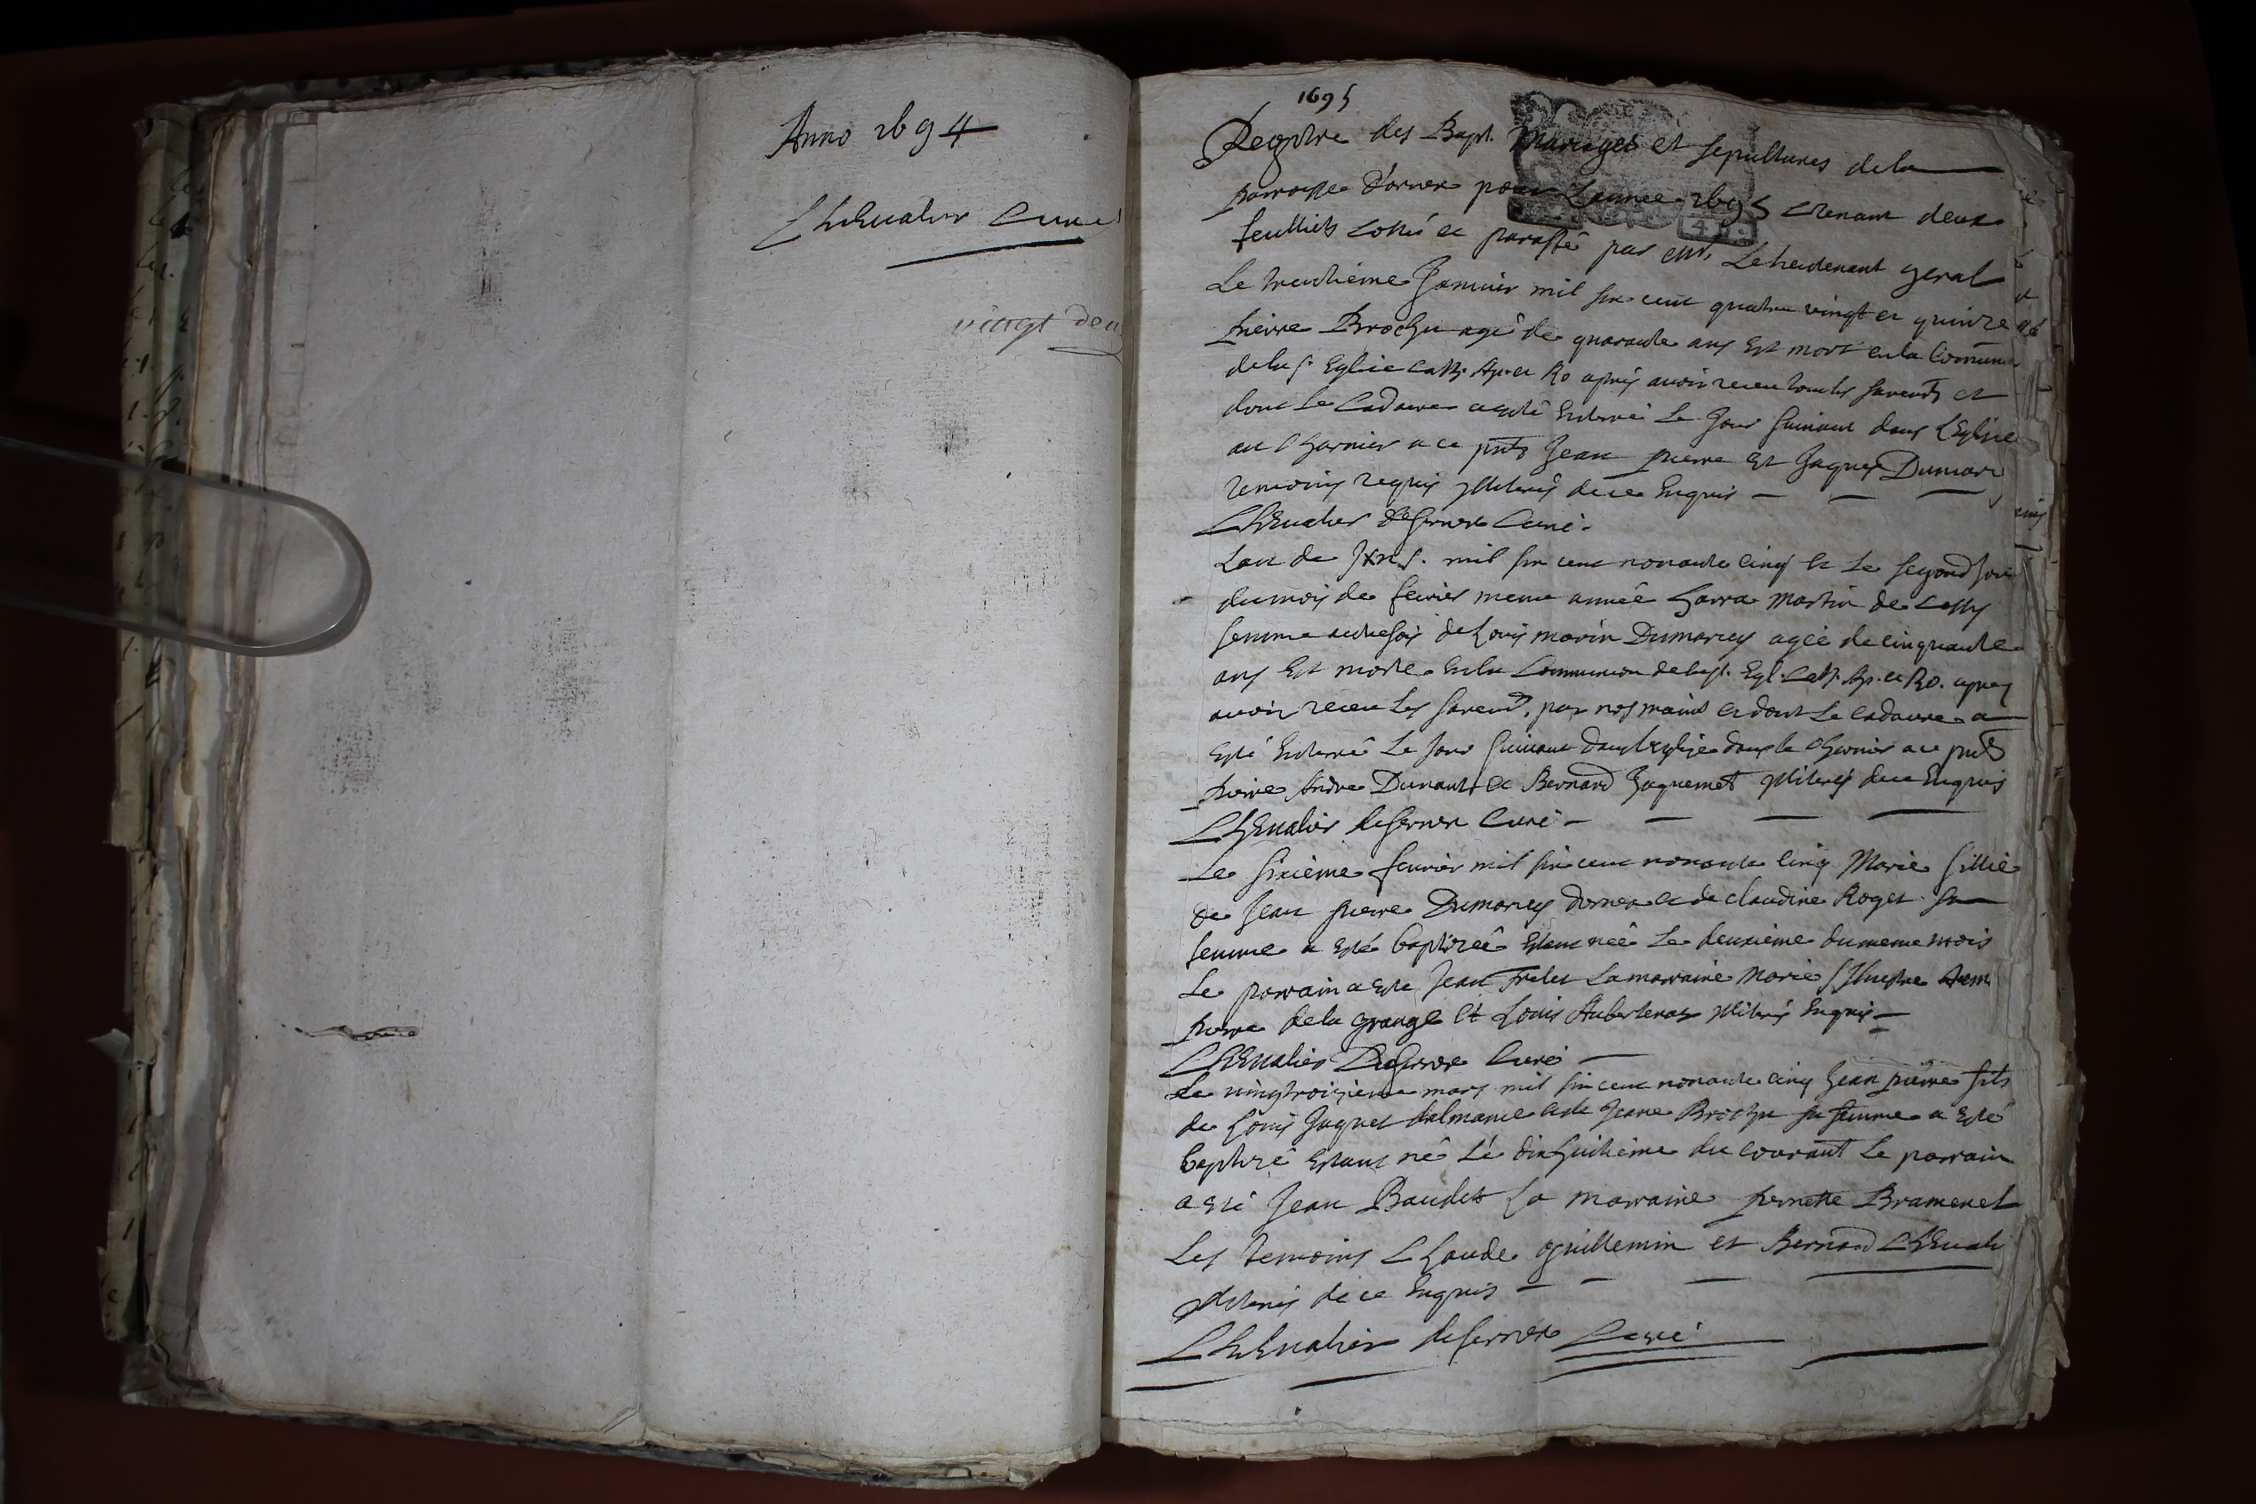 Anno 1694
Chevalier Curé
vingt deux
1695
Registre des Bapt. Mariages et sepultures de la
parroisse d'ornex pour L'annee 1695 Ctenant deux
feulliets Cottés et paraffé par Mr. Le lieutenant geral
Le treutieme Janvier mil six cent quatre vingt et quinze
pierre Brochu agé de quarante ans Est mort en la Commun
de la s. Eglise Cath. Ap. et Ro apres avoir receu tous les sacrents et
dont Le Cadavre a esté Enterré Le jour suivant dans L'Eglise
au Charnier a ce pnts Jean pierre Et Jaques Dumare
temoins requis de ce Enquis
Chevalier de Curé
Lan de mil six cent nonante cinq et Le segond jour
du mois de fevrier meme année martin de
femme autrefois de Louis marin Dumarey agée de cinquante
ans Est morte En la Communion de la st. Egl. Cath. Ap. et Ro. apres
avoir receu Les sacrents par nos mains et dont Le cadavre a
Esté Enterré Le jour suivant dans L'eglise dans le Charnier a ce pnts
pierre Andre Dunant et Bernard Jaquemet illiterés de ce Enquis
Chevalier de Curé
Le sixieme fevrier mil six cent nonante cinq Marie fillie
de Jean pierre Dumarey dornex et de claudine Roget sa
femme a esté baptizeé Estant neé Le deuxieme du meme mois
Le parrain a este Jean La marraine Marie
pierre de la grange Et Louis illiterés Enquis
Chevalier Curé
Le vingtroisieme mars mil six cent nonante cinq Jean pierre fils
de Louis Jaquet et de Jeane Brochu sa femme a Esté
baptizé Estant né Le dixhuitieme du courant Le parrain
a esté Jean Baudet La marraine pernette Bramerel
Les temoins Claude guillemin et Bernard Chevali
illiterés de ce Enquis
Chevalier de Curé